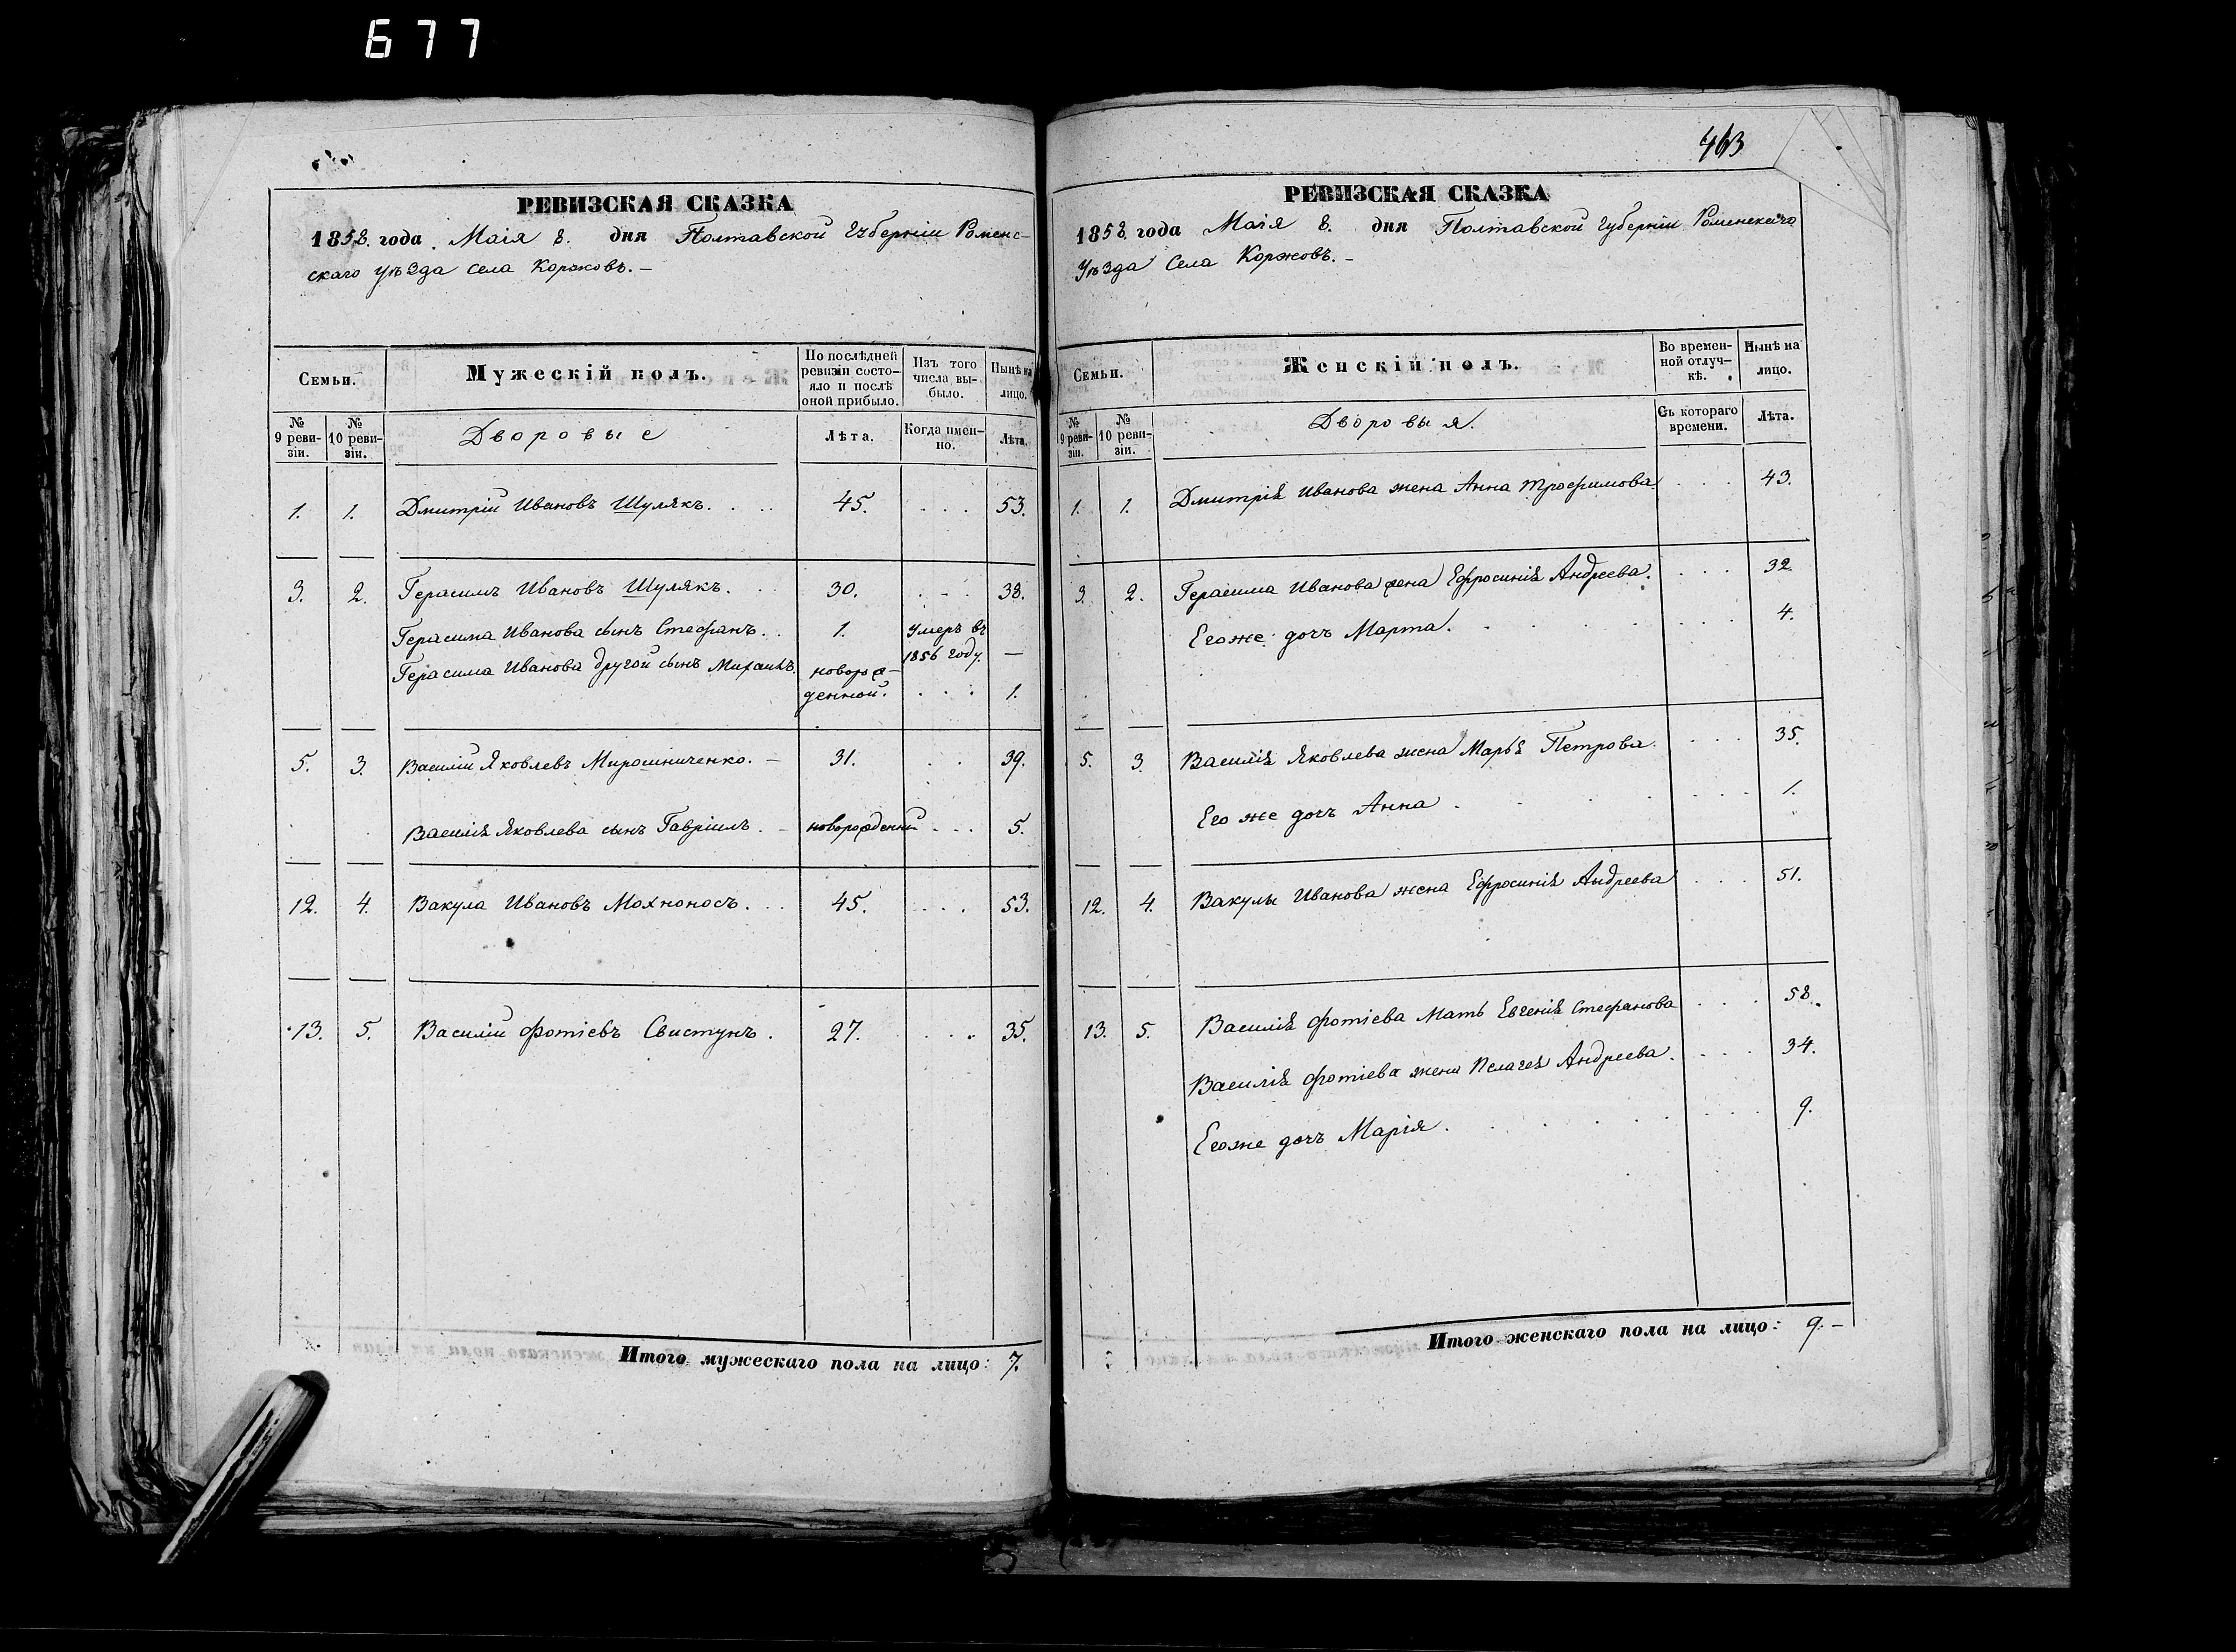 677
РЕВИЗСКАЯ СКАЗКА
1858. года. Маія 8. дня Полтавской Губерніи Роменс-
скаго уѣзда села Коржовъ.-
Семьи.
Мужескій полъ.
По послѣдней ревизіи состояло и послѣ оной прибыло.
Изъ того числа вы-было.
Нынѣ на лицо.
№ 9 реви-зіи.
№ 10 реви-зіи.
Дворовые
Лѣта.
Когда имен-но.
Лѣта.
1. 1. Дмитрій Ивановъ Шулякъ. 45. . . . 53.
3. 2. Герасимъ Ивановъ Шулякъ. 30. . . . 38.
Герасима Иванова сынъ Стефанъ. . 1. Умеръ въ
1856 году. —
Герасима Иванова другой сынъ Михаилъ. новорож-
денной. . . . 1.
5. 3. Василій Яковлевъ Мирошниченко. - 31. . . 39.
Василія Яковлева сынъ Гавріилъ. - новорожденный . . . 5.
12. 4. Вакула Ивановъ Мохноносъ. . . 45. . . . 53.
13. 5. Василій Фотіевъ Свистунъ. 27. . . . 35.
Итого мужескаго пола на лицо: 7.
463
РЕВИЗСКАЯ СКАЗКА
1858. года Маія 8. дня Полтавской Губерніи Роменскаго
Уѣзда Села Коржовъ.-
Семьи.
Женскій полъ.
Во времен-ной отлуч-кѣ.
Нынѣ на лицо.
№ 9 реви-зіи.
№ 10 реви-зіи.
Дворовыя.
Съ котораго времени.
Лѣта.
1. 1. Дмитрія Иванова жена Анна Трофимова . . . 43.
3. 2. Герасима Иванова жена Ефросинія Андреева. . . . 32.
Егоже дочь Марта. . . . 4.
5. 3. Василія Яковлева жена Марья Петрова. . . . 35.
Его же дочь Анна . . . . 1.
12. 4. Вакулы Иванова жена Ефросинія Андреева . . . 51.
13. 5. Василія Фотіева Мать Евгенія Стефанова . . . 58.
Василія Фотіева жена Пелагея Андреева. . . . 34.
Егоже дочь Марія. . . . 9.
Итого женскаго пола на лицо: 9.-